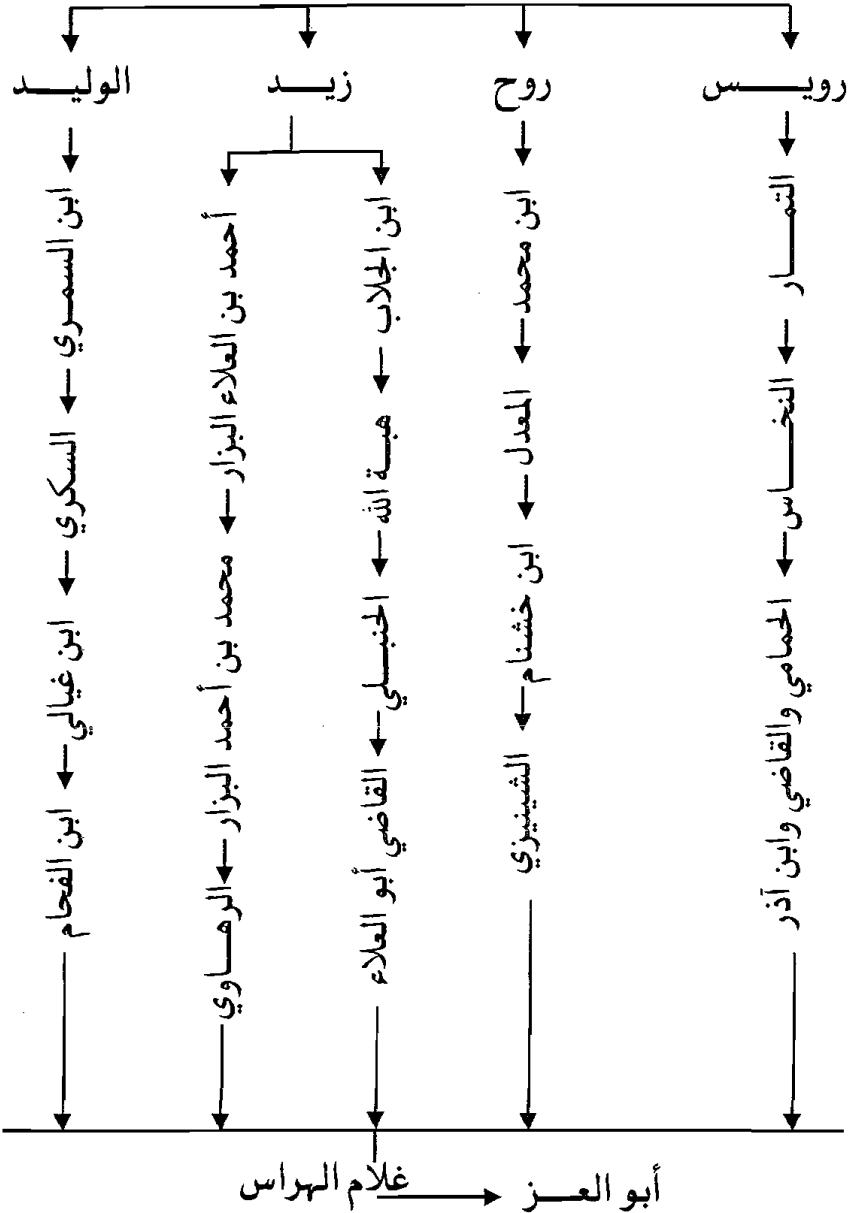 رويس
روح
زيد
الوليد
التمار
النخاس
الحمامي والقاضي وابن آذر
ابن محمد
المعدل
ابن خشنام
الشينيزي
ابن الجلاب
هبة الله
الحنبلي
القاضي أبو العلاء
أحمد بن العلاء البزار
محمد بن أحمد البزار
الرهاوي
ابن السمري
السكري
ابن غيالي
ابن الفحام
غلام الهراس
أبو العز